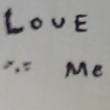 LOUE
Me